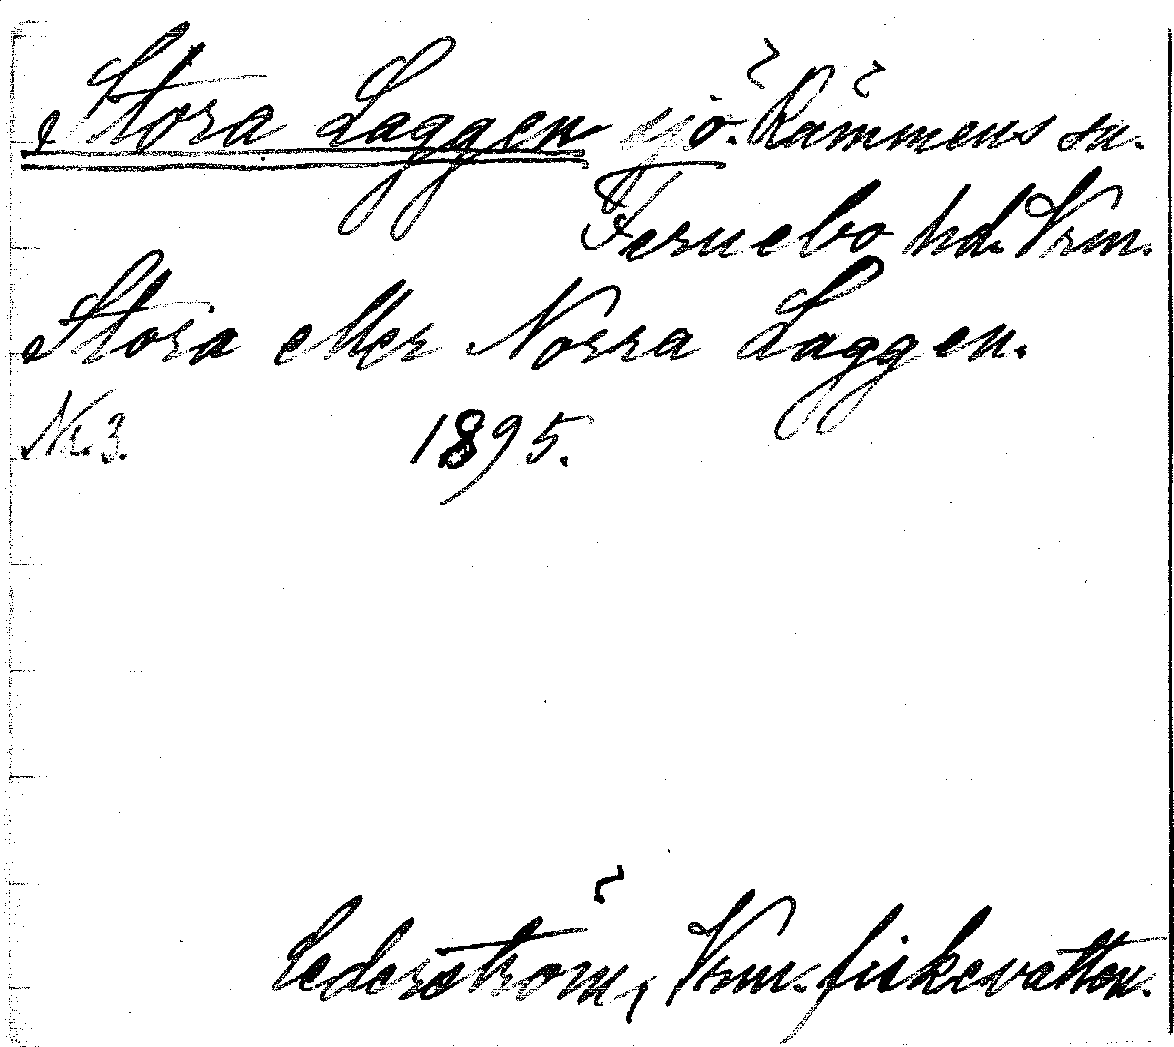 Stora Laggen sjö. Rämmens sn.
Fernebo hd. Vrm.
Stora eller Norra Laggen.
Nr. 3. 1895.
Cederström, Vrm. fiskevatten.